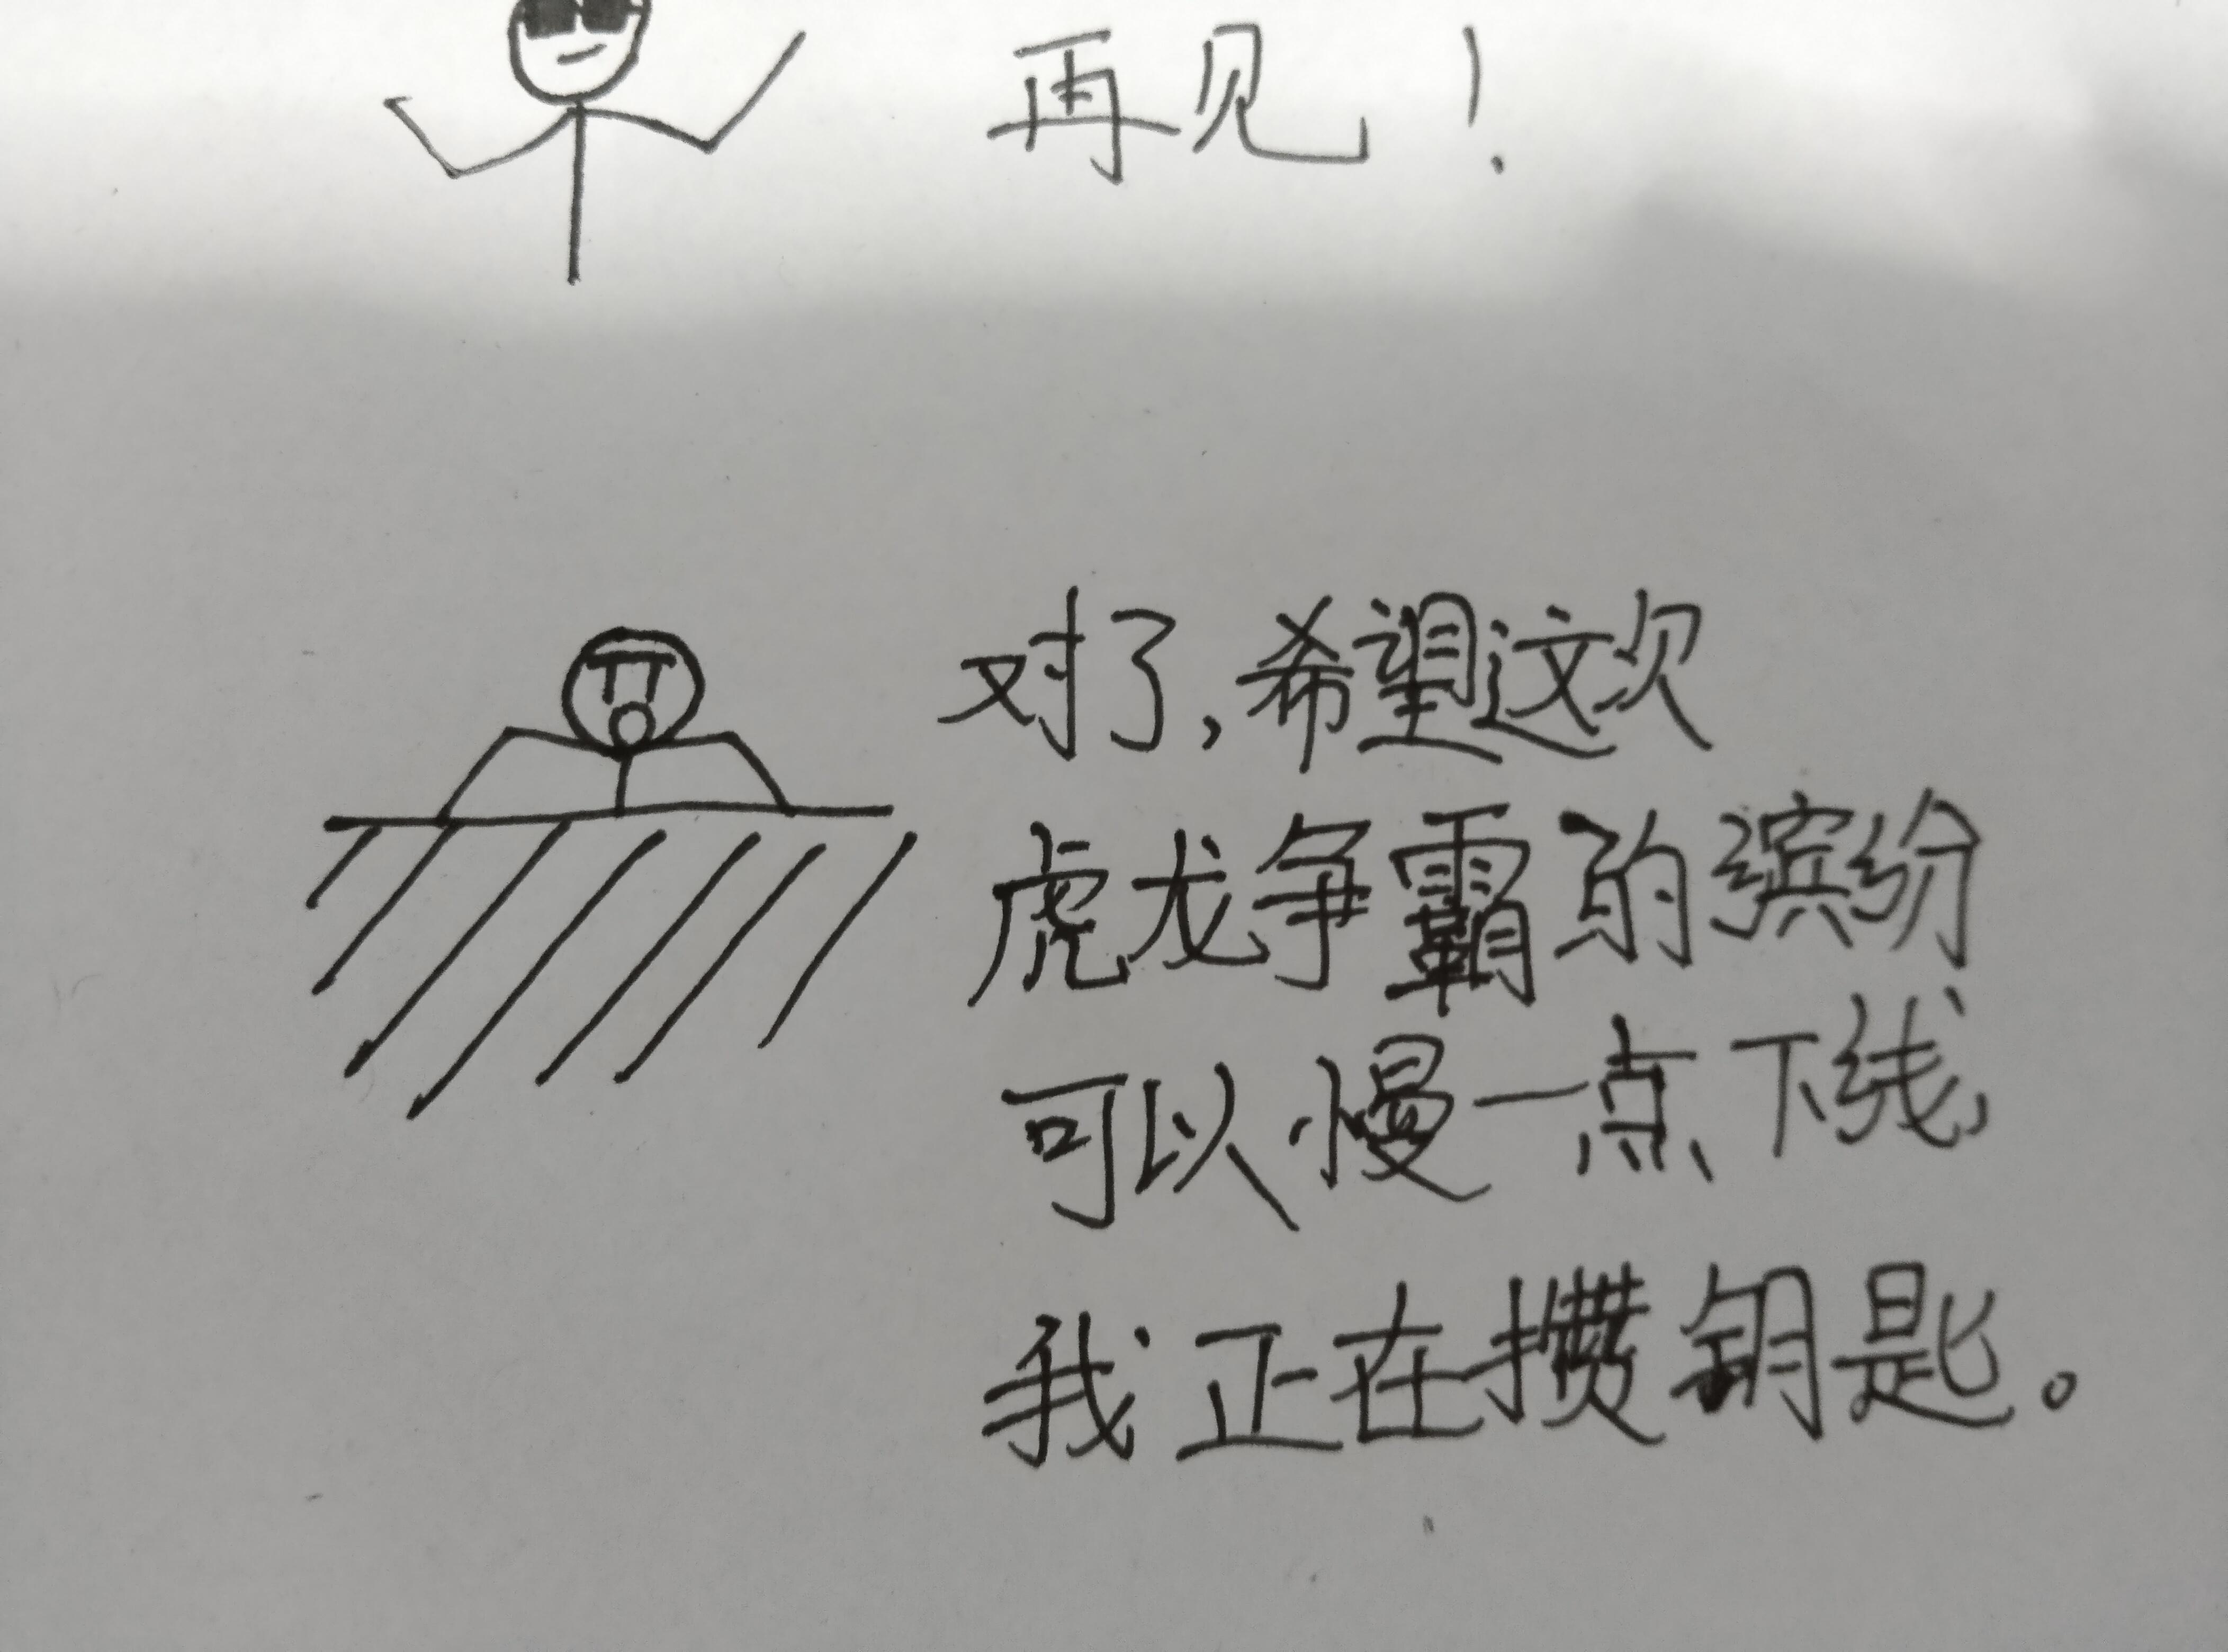 再见！
对了,希望这次
虎龙争霸的缤纷
可以慢一点下线,
我正在攒钥匙。